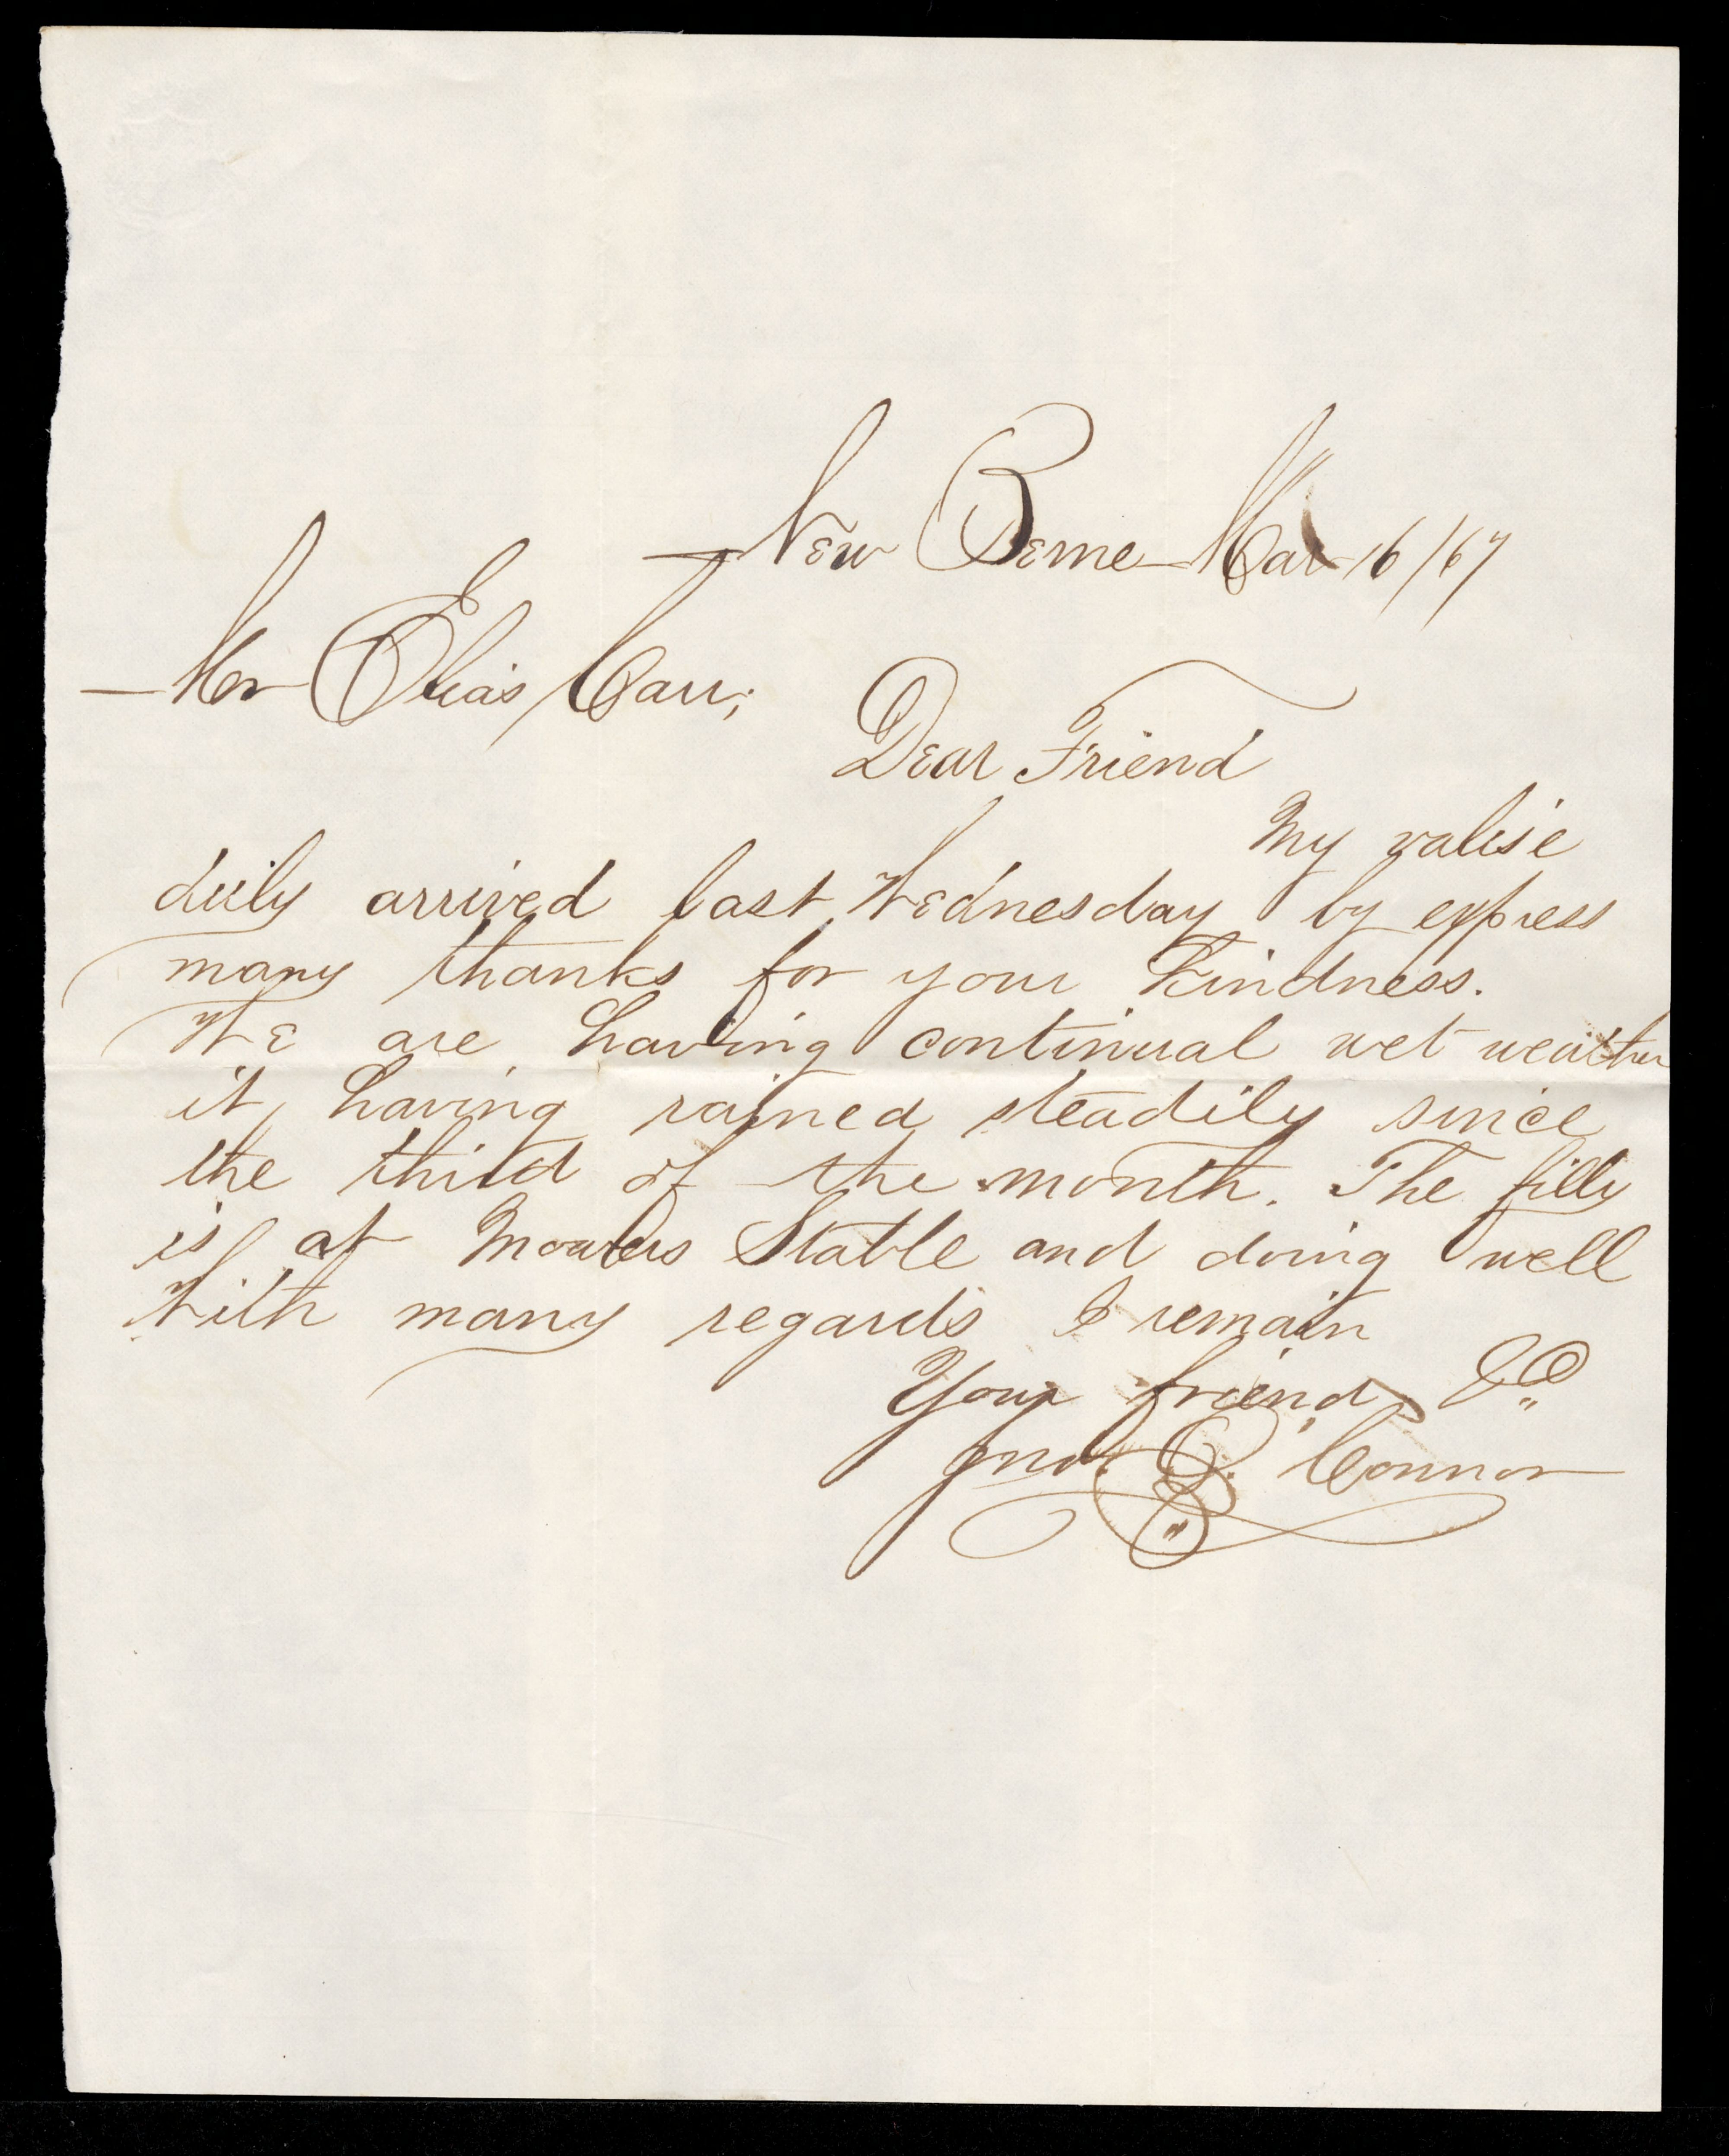 New Berne Mar 16/67
Mr Elias Carr;
Dear Friend
My valise
duly arrived last Wednesday by express
many thanks for your kindness.
We are having continual wet weather
it having rained steadily since
the third of the month. The filly
is at Stable and doing well
With many regards I remain
Your friend &c
Jno. Connor